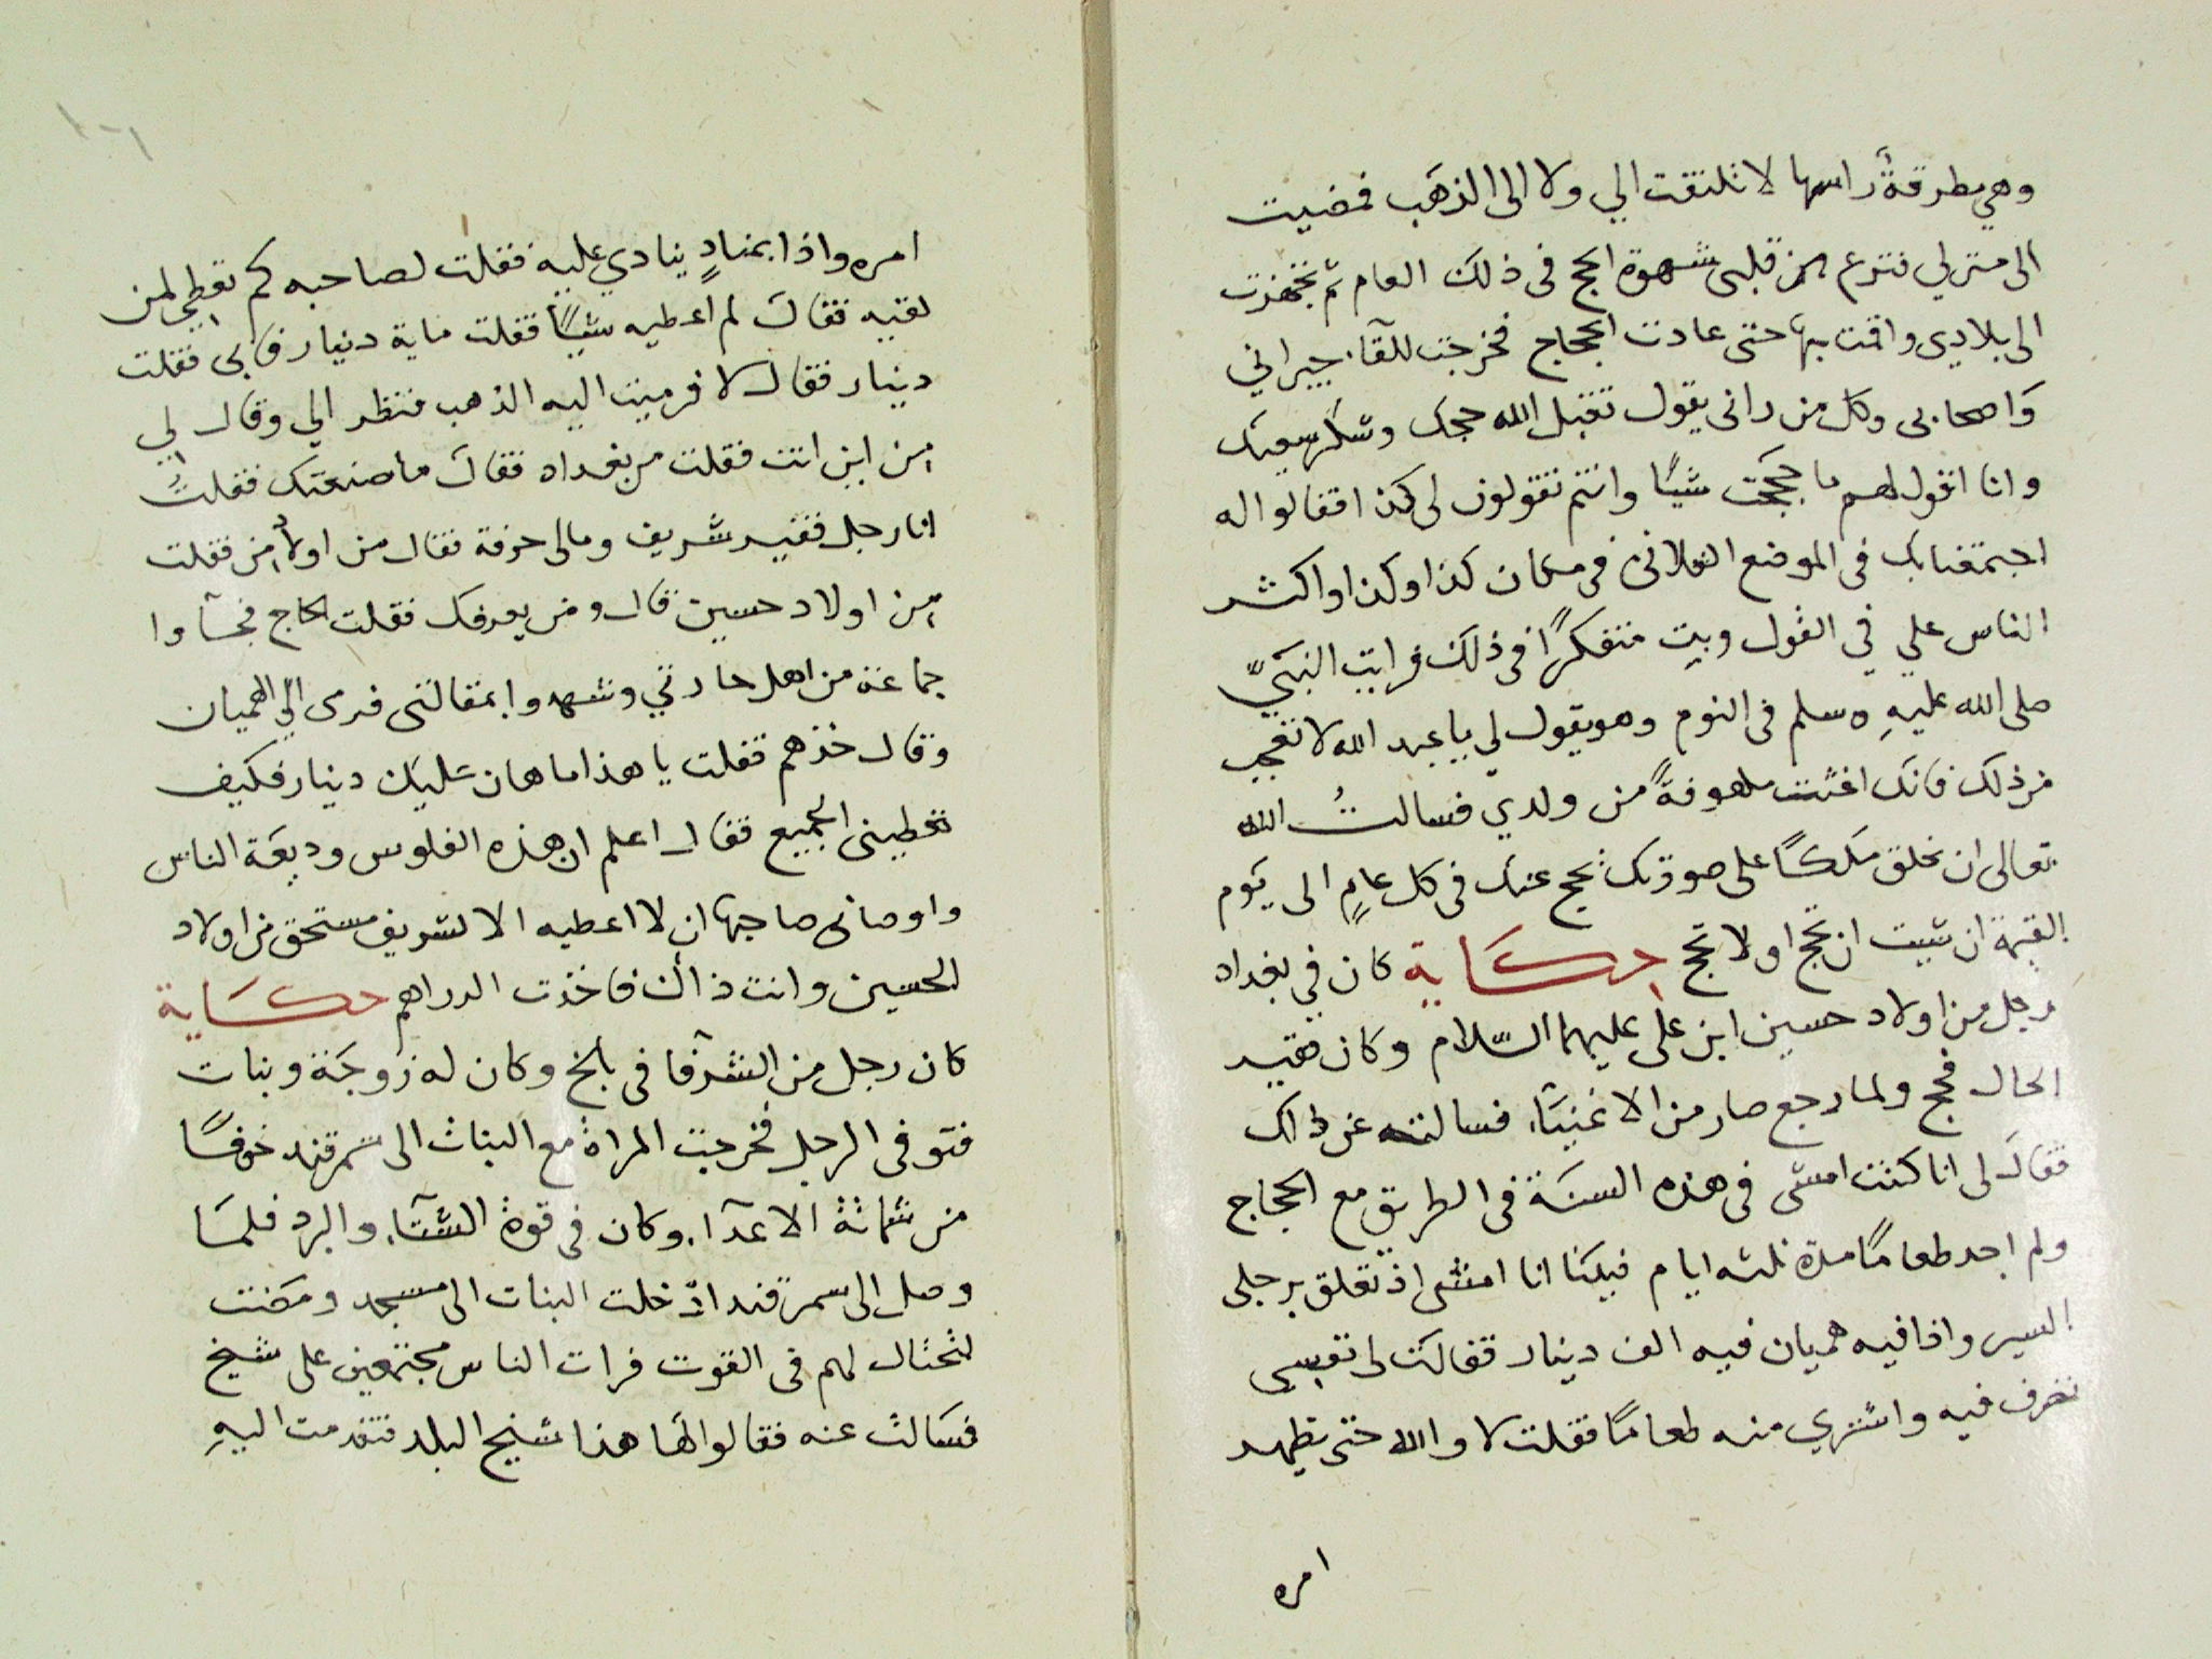 وهي مطرقةً راسها لا تلتقت الي ولا الى الذهَب فمضيت
الى منزلي فنزع من قلبى شهوة الحج فى ذلك العام ثم تجهزت
الى بلادي واقمت بها حتى عادت الحجاج فخرجت للقآء جيراني
وَاصحابى وكل من رانى يقول تقبل الله حجك وشكر سعيك
وانا اقول لهم ما حججت شيئًا وانتم تقولون لى كذا فقالوا له
اجتمعنا بك فى الموضع الفلانى فى مكان كذا وكذا واكثر
الناس علي في القول وبت متفكرًا فى ذلك فرايت النبَيّ
صلى الله عليهِ وسلم فى النوم وهو يقول لي يا عبد الله لا تعجب
من ذلك فانك اغثت ملهوفةً من ولدي فسالتُ الله
تعالى ان يخلق مَلَكًا على صورتك يحج عنك فى كل عامٍ الى يَوم
القيمة ان شيت ان تحج او لا تحج حكَاية كان في بغداد
رجل من اولاد حسين ابن على عليهما السّلام وكان فقير
الحال فحج ولما رجع صار من الاغنيَآء فسالته عن ذالك
فقالَ لى انا كنت امشى فى هذه السنَة فى الطريق مع الحجاج
ولم اجد طعامًا مدة ثلثه ايام فبينَا انا امشى اذ تعلق برجلى
السير واذا فيه هميان فيه الف دينار فقالت لى نفسى
تصرف فيه واشتري منه طعامًا فقلت لا والله حتى يظهر
امره
امره واذا بمنادٍ ينادي عليه فقلت لصاحبه كم تعطي لمن
لقيه فقالَ لم اعطيه شيئًا فقلت ماية دنيار فابى فقلت
دينار فقال لا فرميت اليه الذهب فنظر الي وقال لي
من اين انت فقلت من بغداد فقالَ ما صنعتك فقلتُ
انا رجل فقير شريف ومالى حرفة فقال من اولاد من فقلت
من اولاد حسين قال ومن يعرفك فقلت الحاج فجآوا
جماعة من اهل حارتي وشهدوا بمقالتى فرمى اليّ الهميان
وقال خذهم فقلت يا هذا ما هان عليك دينار فكيف
تعطينى الجميع فقال اعلم ان هذه الفلوس وديعَة الناس
واوصانى صاحبها ان لا اعطيه الا لشريف مستحق من اولاد
الحسين وانت ذالك فاخذت الدراهم حكَاية
كان رجل من الشرفا فى بلخ وكان له زوجَة وبنات
فتوفى الرجل فخرجت المراة مع البنات الى سمرقند خوفًا
من شماتة الاعدآء وكان فى قوة الشتَآء والبرد فلمَا
وصل الى سمرقند ادخلت البنات الى مسجد ومَضت
لتحتال لهم فى القوت فرات الناس مجتمعين على شيخ
فسَالت عنه فقالوا لهَا هذا شيخ البلد فتقدمت اليهِ